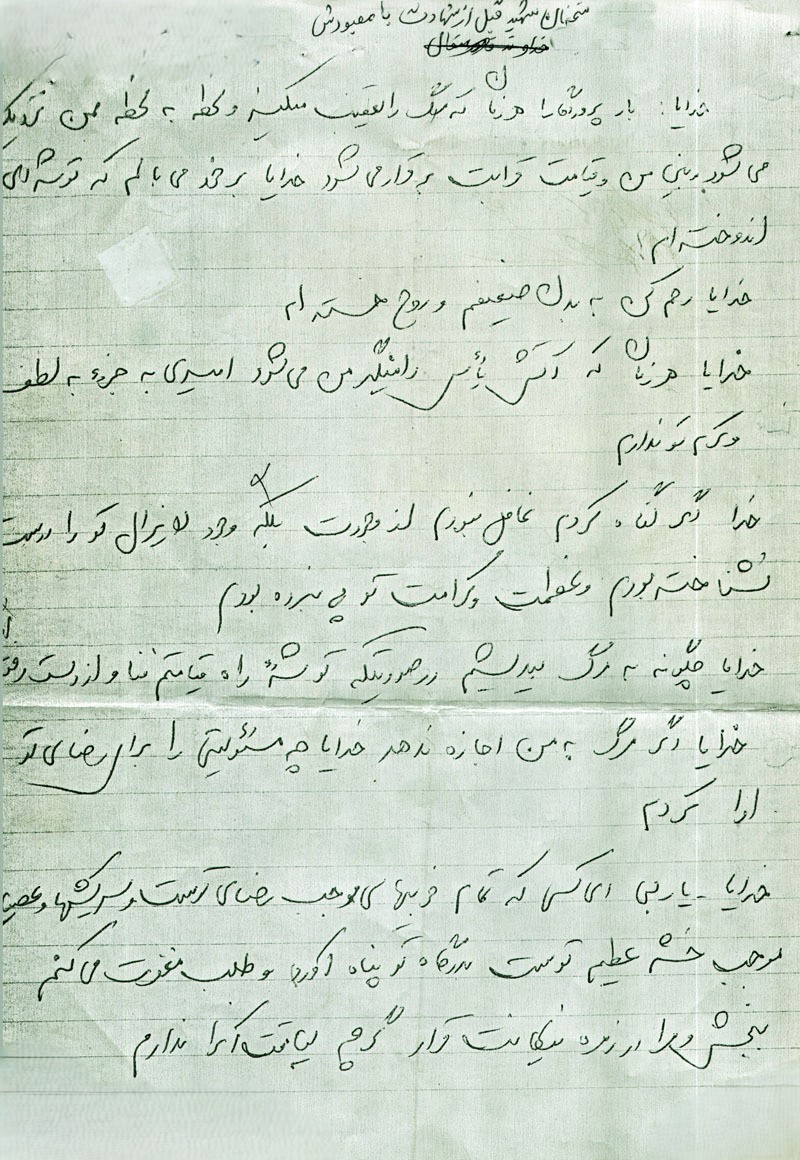 سخنان شهید قبل از شهادت با معبودش
خدایا: بار پروردگارا هر زمان که مرگ را تعقیب میکنم و لحظه به لحظه بمن نزدیک
می شود و بین من و قیامت قرابت برقرار می شود خدایا بر خود می بالم که توشه ای
اندوخته ام!
خدایا رحم کن به بدن ضعیفم و روح خسته ام
خدایا هر زمان که آتش یأس دامنگیر من می شود امیدی به جزء به لطف
و کرم تو ندارم
خدا اگر گناه کردم غافل نبودم از وجودت بلکه وجود لایزال تو را درست
نشناخته بودم و عظمت و کرامت تو پی نبرده بودم
خدایا چگونه به مرگ بیندیشم در صورتیکه توشهٔ راه قیامتم فنا و از دست رفته
خدایا اگر مرگ به من اجازه ندهد خدایا چه مسئولیتی را برای رضای تو
ادا کردم
خدایا - یا ربی ای کسی که تمام خوبیها موجب رضای توست و سرکشیها و عصیا
موجب خشم عظیم توست بدرگاه تو پناه آوردم و طلب مغفرت می کنم
ببخش و مرا در زمره نیکانت قرار گرچه لیاقت آنرا ندارم